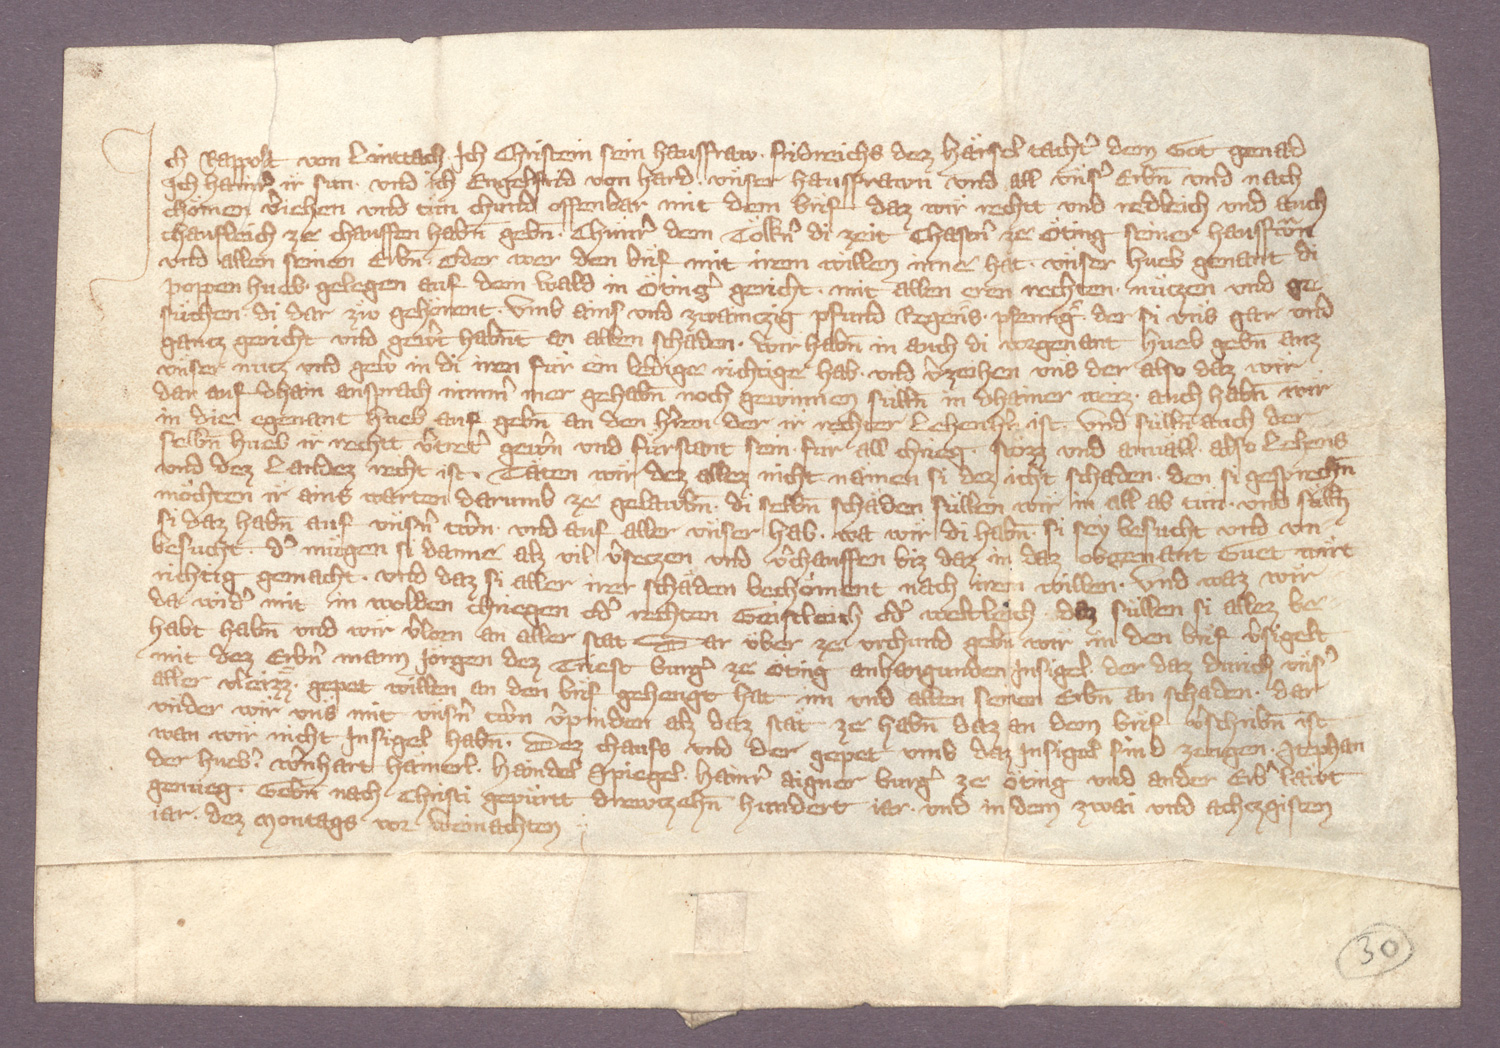 Ich Rappolt von Linttach Ich Christein sein hausfraw · fridreichs dez Härsel tacht̓ dem Got genad
Ich hainr̓ ir sun · vnd ich Engelfrid von hard · vnser hausfrawn vnd all vns̓ Erbn̄ vnd nach
chömen v̓iehen vnd tun chund offenbar mit dem brif · daz wir recht vnd redleich vnd auch
chaufleich ze chauffen habn̄ gebn̄ · Chunr̓ dem Tölkn̓ di zeit Chastn̓ ze Öting seiner hausfrn̄
vnd allen seinen Erbn̄ · oder wer den brif mit irem willen inne hat · vnser hueb genant di
poppen hueb · gelegen auf dem wald in Öting̓ gericht · mit allen eren rechten · nutzen vnd ge
suchen · di dar zw gehörent · vmb ains vnd zwainczig pfund Regens̄ · pfennig̓ · der si vns gar vnd
gancz gericht vnd gew̓t habn̄t an allen schaden · wir habn̄ in auch di vorgenant hueb gebn̄ auz
vnser nutz vnd gew̓ in di iren für ein ledige richtige hab · vnd v̓zeihen vns der also daz wir
dar auf dhain ansprach nimm̓ mer gehabn̄ noch gewinnen sulln̄ in dhainer weiz · auch habn̄ wir
in die egenant hueb auf gebn̄ an den h̓ren der ir rechter Lehenh̓r ist · vnd sülln̄ auch der
selbn̄ hueb ir recht v̓tret̓ gew̓n vnd fürstant sein · für all chrieg · stözz vnd anuäll · also Lehens
vnd dez Landez recht ist · Täten wir dez allez nicht namen si dez icht schaden · den si gesprechn̄
möchten ir ains warten darumb ze gelaubn̄ · di selbn̄ schäden süllen wir in all ab tun · vnd sülln̄
si daz habn̄ auf vnsn̓ trẇn · vnd auf aller vnser hab · wa wir di habn̄ · si sey besucht vnd vn
besucht · d̓ mügen si danne alz vil v̓seczen vnd v̓chauffen biz daz in daz obgenant Guet wirt
richtig gemacht · vnd daz si aller irer schäden bechöment nach irem willen · vnd waz wir
da wid̓ mit in wolden chriegen od̓ rechten Geistleich od̓ weltleich · daz süllen si allez be
habt habn̄ vnd wir v̓lorn an aller stat Dar über ze vrchund gebn̄ wir in den brif v̓sigelt
mit dez Erbn̓ mann Jörgen dez Triest burg̓ ze Öting anhangunden Insigel · der daz durich vns̓
aller vleizz · gepet willen an den brif gehengt hat im vnd allen seinen Erbn̄ an schaden · dar
vnder wir vns mit vnsn̓ trẇn v̓pinden alz daz stät ze habn̄ daz an dem brif v̓schribn̄ ist
wan wir nicht Insigel habn̄ · Dez chaufs vnd der gepet vmb daz Insigel sind zeugen · Stephan
der hueb̓ · w̓nhart hamerl · Haindel Spiegel · Hainr̓ aigner burg̓ ze Öting vnd ander Erb̓ läwt
genueg · Gebn̄ nach Christi gepürtt drewzehn̄ hundert iar · vnd in dem zwai vnd achczgisten
iar · dez Montags vor weinachten
30